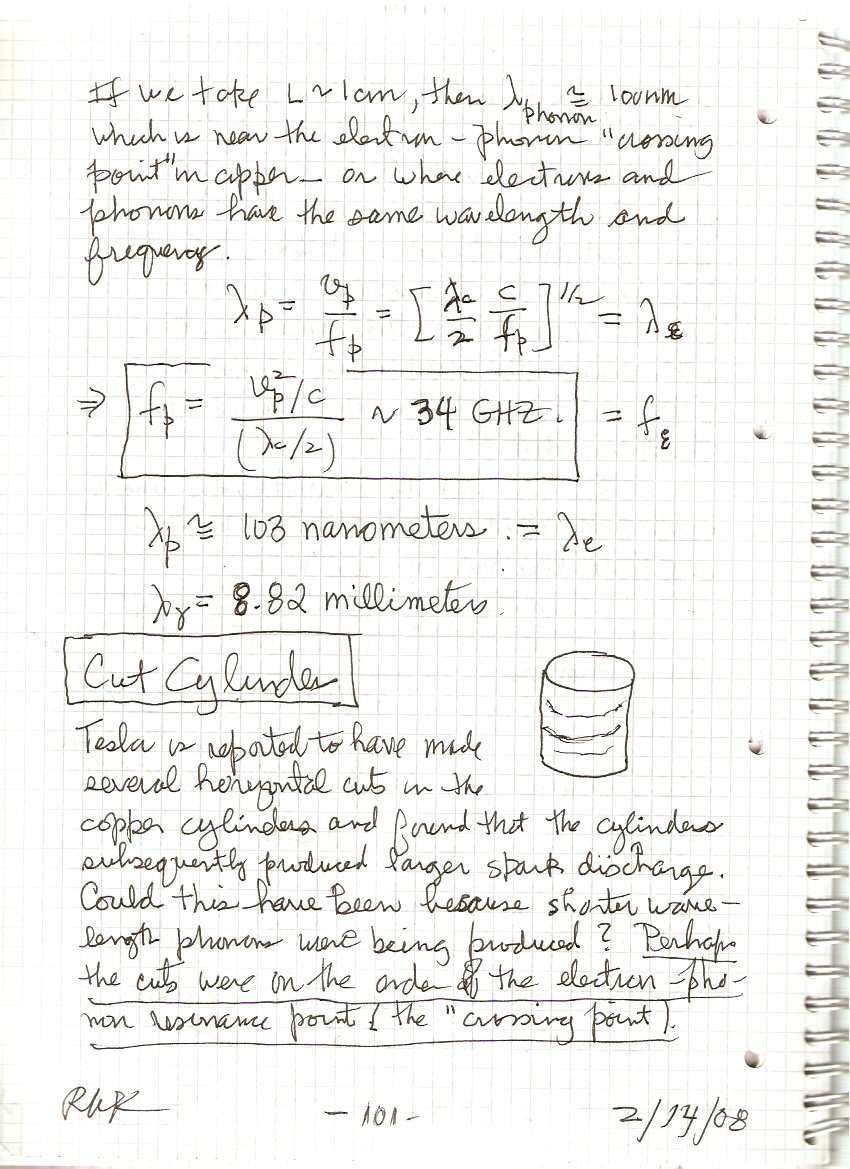 If we take L ~ 1cm, then λphonon ≅ 100nm
which is near the electron-phonon "crossing
point" in copper – or where electrons and
phonons have the same wavelength and
frequency.
λp = vp/fp = [λc/2 c/fp]^1/2 = λε
⇒ fp = (vp²/c)/(λc/2) ~ 34 GHZ. = fε
λp ≅ 103 nanometers. = λe
λγ = 8.82 millimeters.
Cut Cylinder
Tesla is reported to have made
several horizontal cuts in the
copper cylinders and found that the cylinders
subsequently produced larger spark discharge.
Could this have been because shorter wave-
length phonons were being produced? Perhaps
the cuts were on the order of the electron-pho-
non resonance point (the "crossing point).
RHK
- 101 -
2/14/08